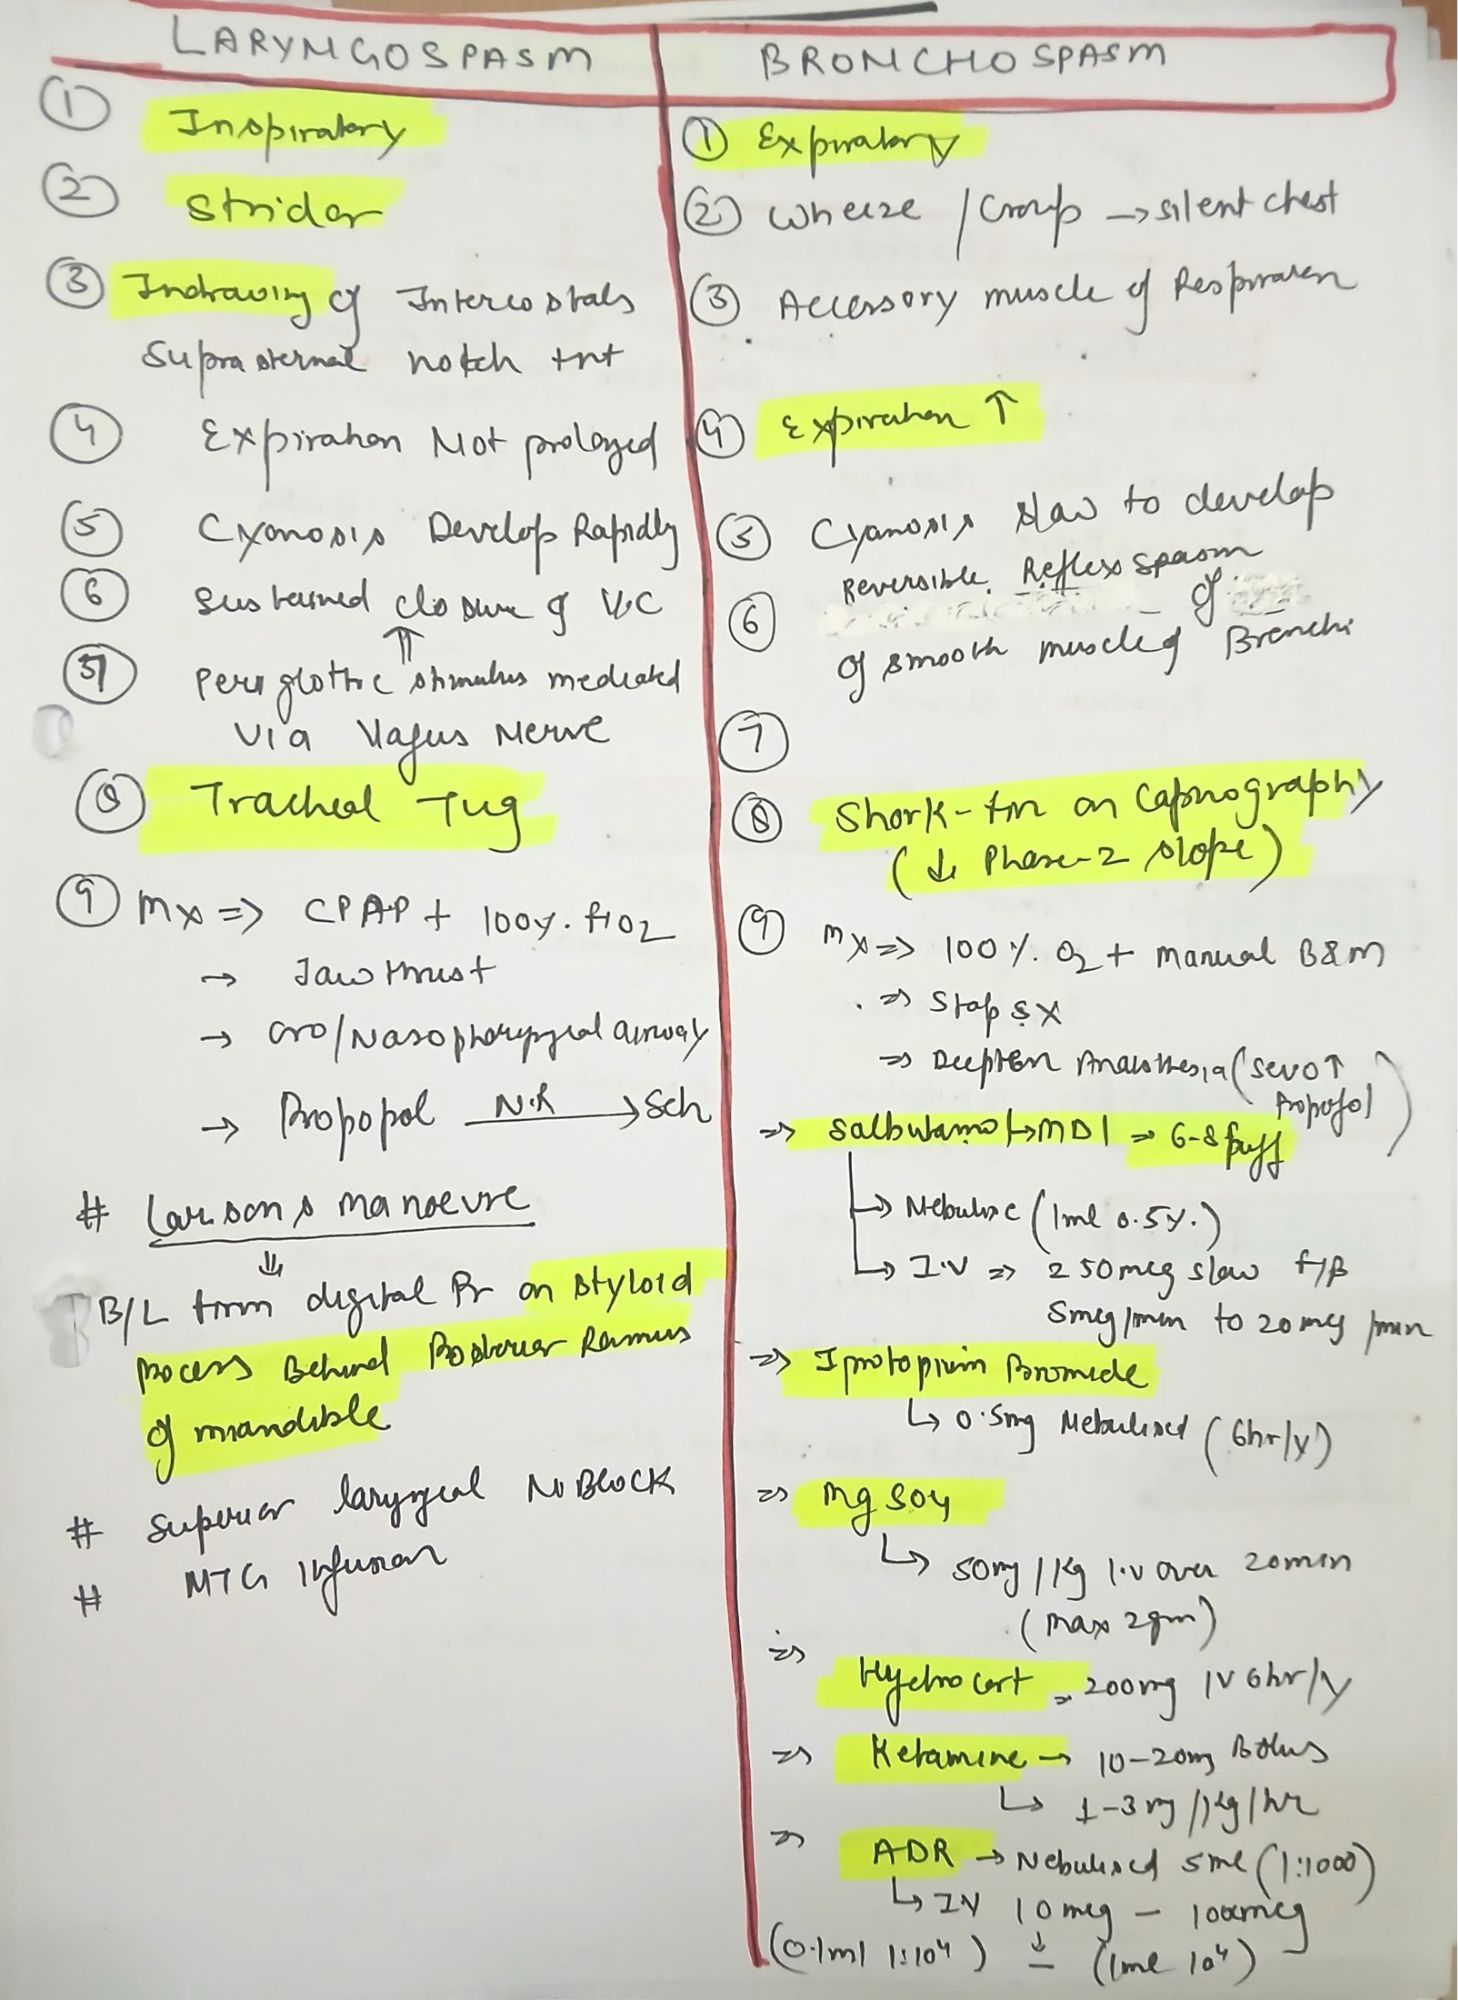 LARYNGOSPASM
① Inspiratory
② Stridor
③ Indrawing of Intercostals
Suprasternal notch tnt
④ Expiration Not prolonged
⑤ Cyanosis Develop Rapidly
⑥ Sustained closure of V.C
⇑
Periglottic stimulus mediated
via Vagus Nerve
⑧ Tracheal Tug
⑨ Mx ⇒ CPAP + 100%. fiO2
→ Jaw thrust
→ oro/Nasopharyngeal airway
→ Propopol N.R → Sch
# Larson's manoevre
⇓
B/L firm digital Pr on styloid
process Behind Posterior Ramus
of mandible
# Superior laryngeal N. BLOCK
# NTG Infusion
BRONCHOSPASM
① Expiratory
② Wheeze / Croup → silent chest
③ Accessory muscle of Respiration
④ Expiration ↑
⑤ Cyanosis slow to develop
⑥ Reversible Reflex spasm of
of smooth muscle of Bronchi
⑦
⑧ Shark-fin on Capnography
(↓ Phase-2 slope)
⑨ Mx ⇒ 100%. O2 + manual B&M
⇒ Stop Sx
⇒ Deepten Anaesthesia (sevo↑
Propofol)
⇒ Salbutamol → MDI ⇒ 6-8 puff
→ Nebulise (1ml 0.5%.)
→ I.V ⇒ 250mcg slow f/B
5mcg/min to 20mcg/min
⇒ Iprotopium Bromide
↳ 0.5mg Nebulised (6hr/y)
⇒ MgSO4
↳ 50mg/kg I.V over 20min
(Max 2gm)
⇒ Hydrocort ⇒ 200mg IV 6hr/y
⇒ Ketamine → 10-20mg Bolus
↳ 1-3mg/kg/hr
⇒ ADR → Nebulised 5ml (1:1000)
↳ IV 10mcg - 100mcg
(0.1ml 1:10⁴) ↓ – (1ml 10⁴)